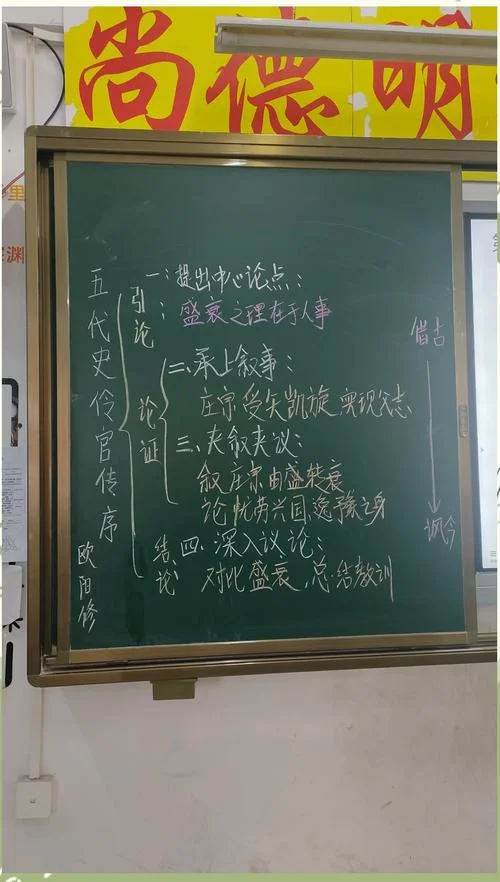 尚德明
五代史伶官传序
欧阳修
引论：
一：提出中心论点：
盛衰之理在于人事
论证
二、承上叙事：
庄宗受矢凯旋，实现父志
三、夹叙夹议：
叙庄宗由盛转衰
论忧劳兴国，逸豫亡身
结论
四、深入议论：
对比盛衰，总结教训
借古
讽今
里
渊